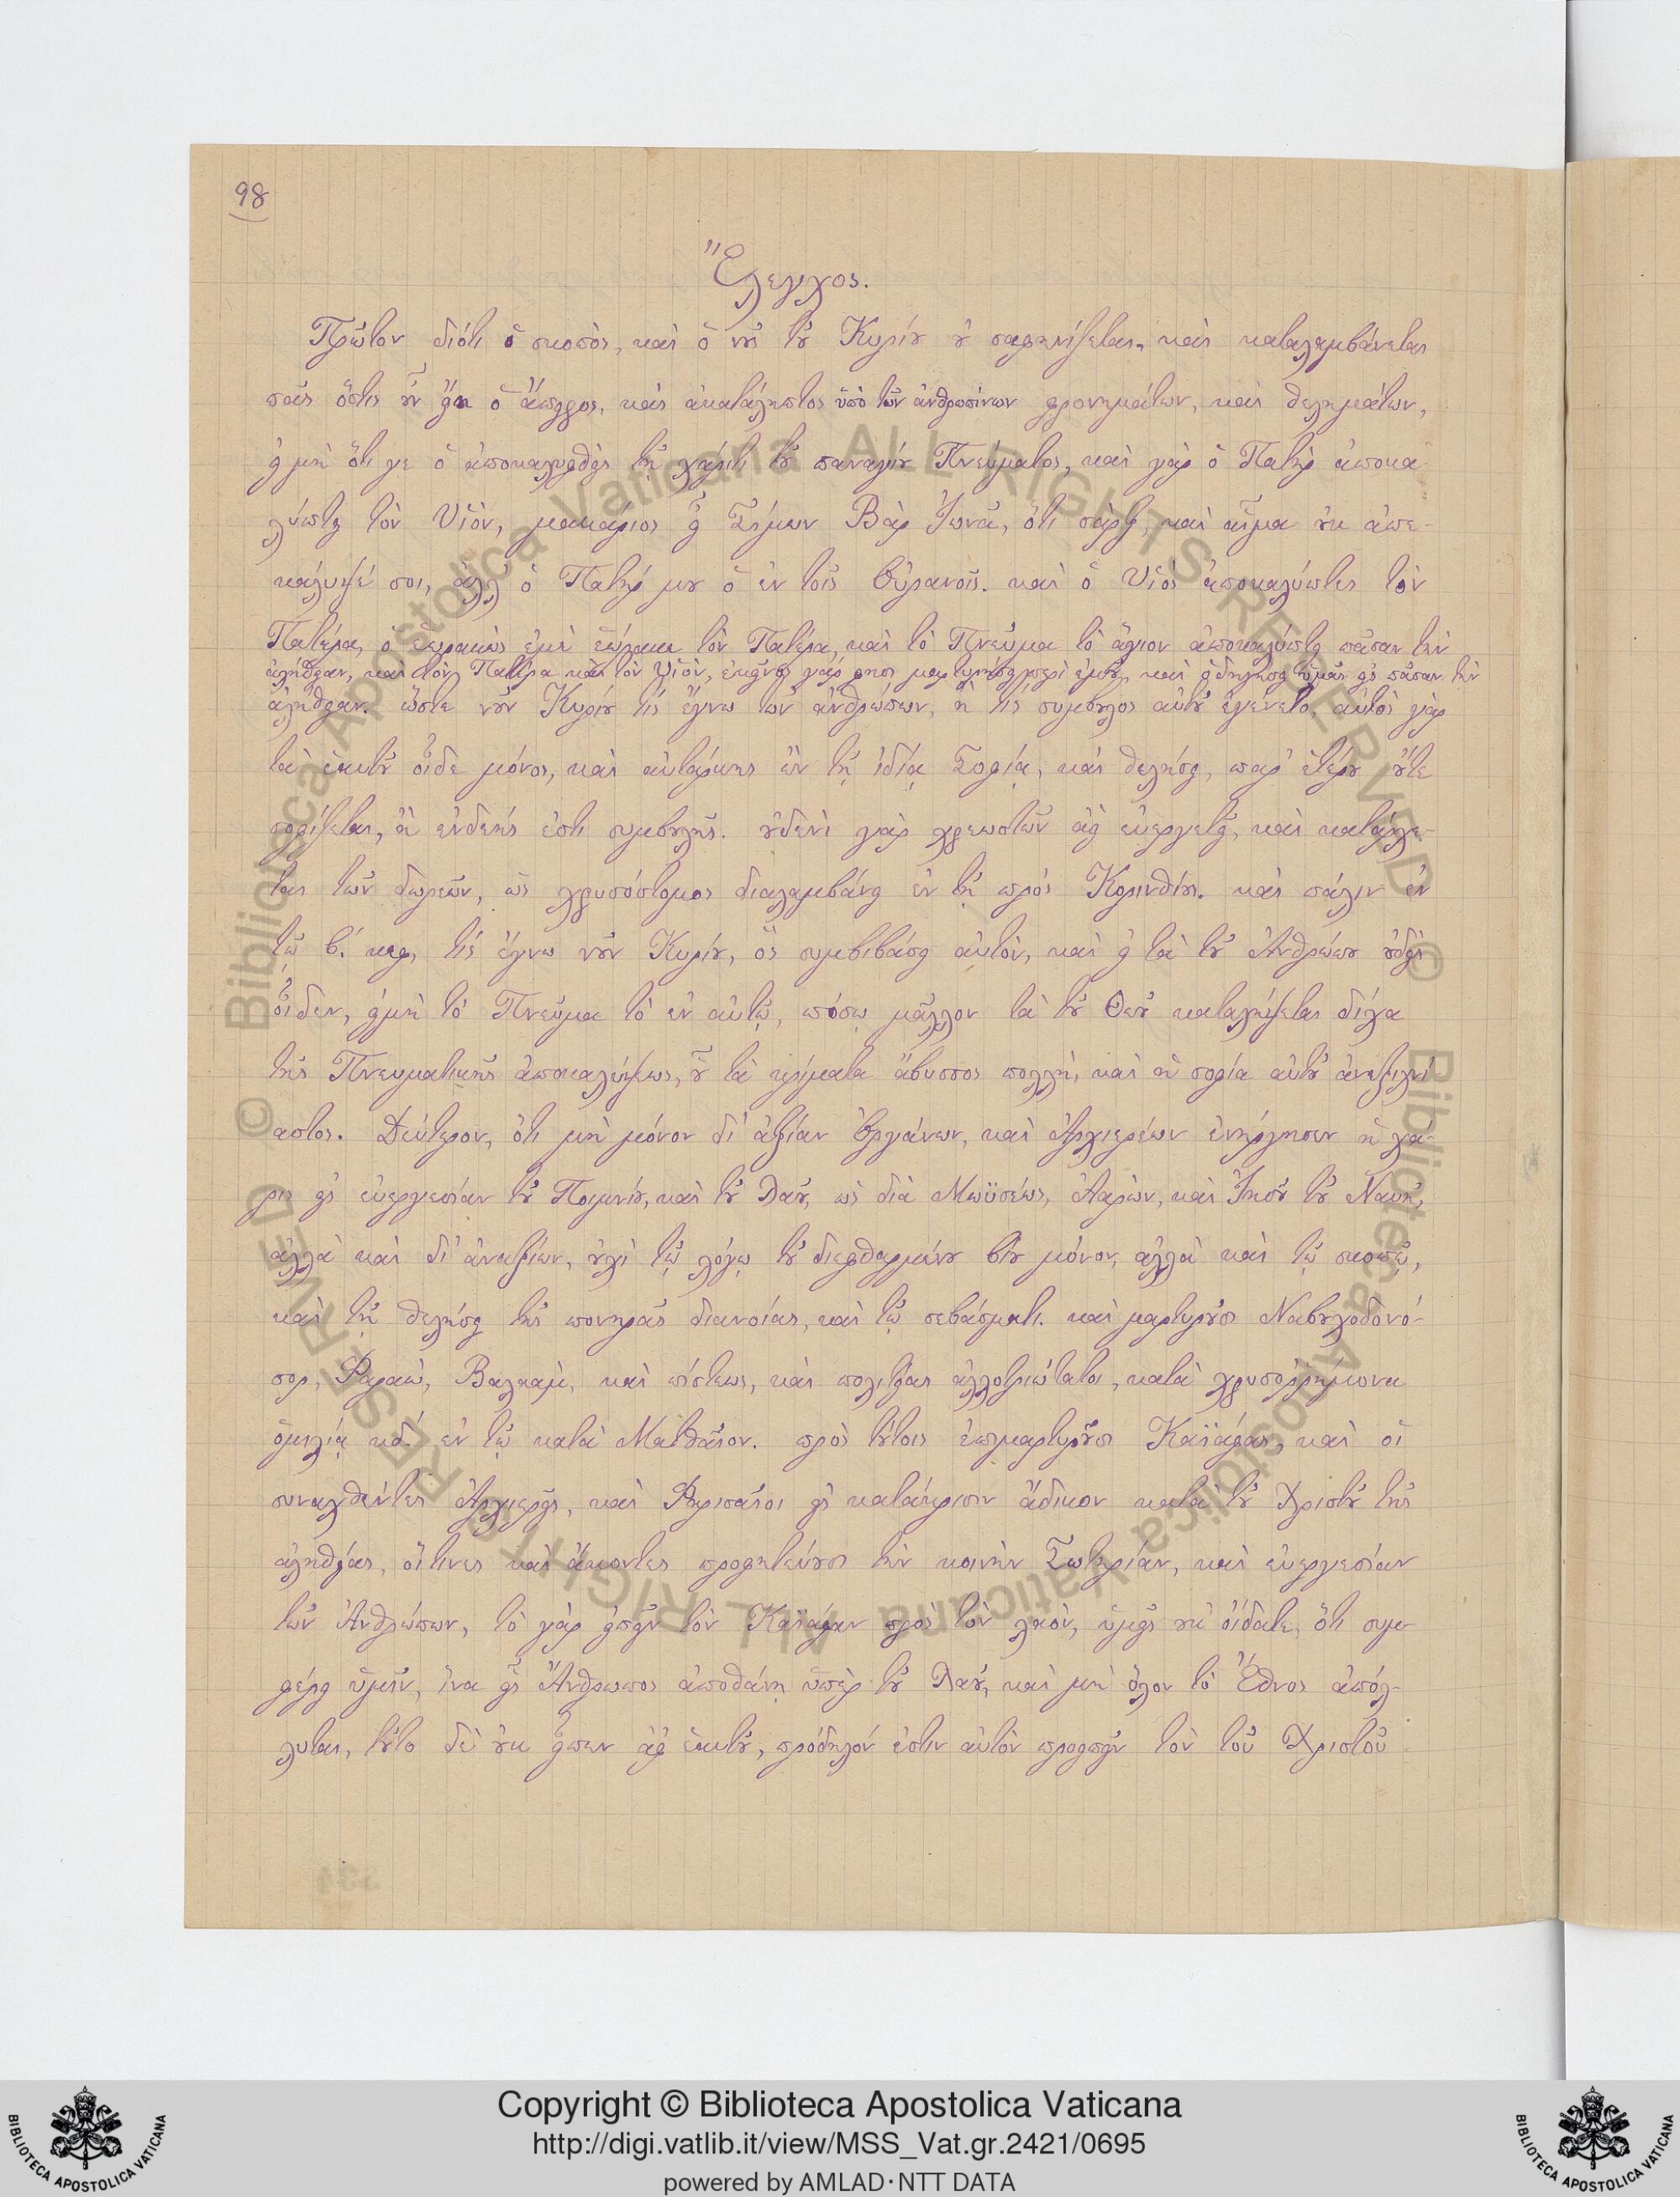 98
Ἔλεγχος.
Πρῶτον διότι ὁ σκοπὸς, καὶ ὁ νοῦς τοῦ Κυρίου οὐ σαφηνίζεται, καὶ καταλαμβάνεται
πᾶς ὅστις οὖν εἴη ὁ ἄπειρος, καὶ ἀκατάληπτος ὑπὸ τῶν ἀνθρωπίνων φρονημάτων, καὶ θελημάτων,
εἰ μὴ ὅτι γε ὁ ἀποκαλυφθεὶς τῇ χάριτι τοῦ παναγίου Πνεύματος, καὶ γὰρ ὁ Πατὴρ ἀποκα-
λύπτει τὸν Υἱὸν, μακάριος εἶ Σίμων Βὰρ Ἰωνᾶ, ὅτι σὰρξ, καὶ αἷμα οὐκ ἀπε-
κάλυψέ σοι, ἀλλ' ὁ Πατήρ μου ὁ ἐν τοῖς Οὐρανοῖς. καὶ ὁ Υἱὸς ἀποκαλύπτει τὸν
Πατέρα, ὁ ἑωρακὼς ἐμὲ ἑώρακε τὸν Πατέρα, καὶ τὸ Πνεῦμα τὸ ἅγιον ἀποκαλύπτει πᾶσαν τὴν
ἀλήθειαν, καὶ τὸν Πατέρα καὶ τὸν Υἱὸν, ἐκεῖνος γάρ φησι μαρτυρήσει περὶ ἐμοῦ, καὶ ὁδηγήσει ὑμᾶς εἰς πᾶσαν τὴν
ἀλήθειαν. ὥστε νοῦν Κυρίου τίς ἔγνω τῶν ἀνθρώπων, ἢ τίς σύμβουλος αὐτοῦ ἐγένετο, αὐτὸς γὰρ
τὰ ἑαυτοῦ οἶδε μόνος, καὶ αὐτάρκης ὢν τῇ ἰδίᾳ Σοφίᾳ, καὶ θελήσει, παρ' ἑτέρου οὔτε
σοφίζεται, ἢ ἐνδεής ἐστι συμβουλῆς. οὐδενὶ γὰρ χρεωστῶν ἀεὶ εὐεργετεῖ, καὶ κατάρχε-
ται τῶν δωρεῶν, ὡς χρυσόστομος διαλαμβάνει ἐν τῇ πρὸς Κορινθίους. καὶ πάλιν ἐν
τῷ β. κεφ, τίς ἔγνω νοῦν Κυρίου, ὃς συμβιβάσει αὐτὸν, καὶ εἰ τὰ τοῦ Ἀνθρώπου οὐδεὶς
οἶδεν, εἰμὴ τὸ Πνεῦμα τὸ ἐν αὐτῷ, πόσῳ μᾶλλον τὰ τοῦ Θεοῦ καταλήψεται δίχα
τῆς Πνευματικῆς ἀποκαλύψεως, οὗ τὰ κρίματα ἄβυσσος πολλὴ, καὶ ἡ σοφία αὐτοῦ ἀνεξιχνί
αστος. Δεύτερον, ὅτι μὴ μόνον δι' ἀξίων ὀργάνων, καὶ Ἀρχιερέων ἐνήργησεν ἡ χά-
ρις εἰς εὐεργεσίαν τοῦ Ποιμνίου, καὶ τοῦ Λαοῦ, ὡς διὰ Μωϋσέως, Ἀαρὼν, καὶ Ἰησοῦ τοῦ Ναυῆ,
ἀλλὰ καὶ δι' ἀναξίων, οὐχὶ τῷ λόγῳ τοῦ διεφθαρμένου βίου μόνον, ἀλλὰ καὶ τῷ σκοπῷ,
καὶ τῇ θελήσει τῆς πονηρᾶς διανοίας, καὶ τῷ σεβάσματι. καὶ μαρτυροῦσι Ναβουχοδονό-
σορ, Φαραὼ, Βαλαὰμ, καὶ πίστεως, καὶ πολιτείας ἀλλοτριώτατοι, κατὰ χρυσορρήμονα
ὁμιλίᾳ κδ. ἐν τῷ κατὰ Ματθαῖον. πρὸς τούτοις ἐπιμαρτυροῦσι Καϊάφας, καὶ οἱ
συναχθέντες Ἀρχιερεῖς, καὶ Φαρισαῖοι εἰς κατάκρισιν ἄδικον κατὰ τοῦ Χριστοῦ τῆς
ἀληθείας, οἵτινες καὶ ἄκοντες προφητεύουσι τὴν κοινὴν Σωτηρίαν, καὶ εὐεργεσίαν
τῶν Ἀνθρώπων, τὸ γὰρ εἰπεῖν τὸν Καϊάφαν πρὸς τὸν λαὸν, ὑμεῖς οὐκ οἴδατε, ὅτι συμ-
φέρει ὑμῖν, ἵνα εἷς Ἄνθρωπος ἀποθάνῃ ὑπὲρ τοῦ Λαοῦ, καὶ μὴ ὅλον τὸ Ἔθνος ἀπόλ-
λυται, τοῦτο δὲ οὐκ εἶπεν ἀφ' ἑαυτοῦ, πρόδηλόν ἐστιν αὐτὸν προειπεῖν τὸν τοῦ Χριστοῦ
Copyright © Biblioteca Apostolica Vaticana
http://digi.vatlib.it/view/MSS_Vat.gr.2421/0695
powered by AMLAD·NTT DATA